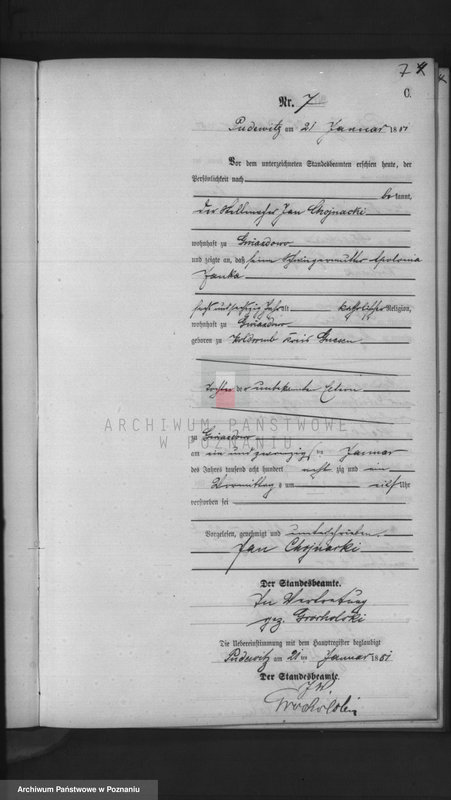 7 4
C.
Nr. 7
Pudewitz am 21 Januar 1881
Vor dem unterzeichneten Standesbeamten erschien heute, der
Persönlichkeit nach
be kannt,
der Stellmacher Jan Chojnacki
wohnhaft zu Gwiazdowo
und zeigte an, daß seine Schwiegermutter Apolonia
Janka
sechs und sechszig Jahr alt katholischer Religion,
wohnhaft zu Gwiazdowo
geboren zu Kreis Gnesen
Tochter der unbekannten Eltern
zu Gwiazdowo
am ein und zwanzigsten Januar
des Jahres tausend acht hundert acht zig und ein
Vormittag s um eilf Uhr
verstorben sei
Vorgelesen, genehmigt und unterschrieben.
Jan Chojnacki
Der Standesbeamte.
In Vertretung
gez. Grocholski
Die Uebereinstimmung mit dem Hauptregister beglaubigt
Pudewitz am 21 ten Januar 1881
Der Standesbeamte.
J.V.
Grocholski
ARCHIWUM PAŃSTWOWE
W POZNANIU
Archiwum Państwowe w Poznaniu